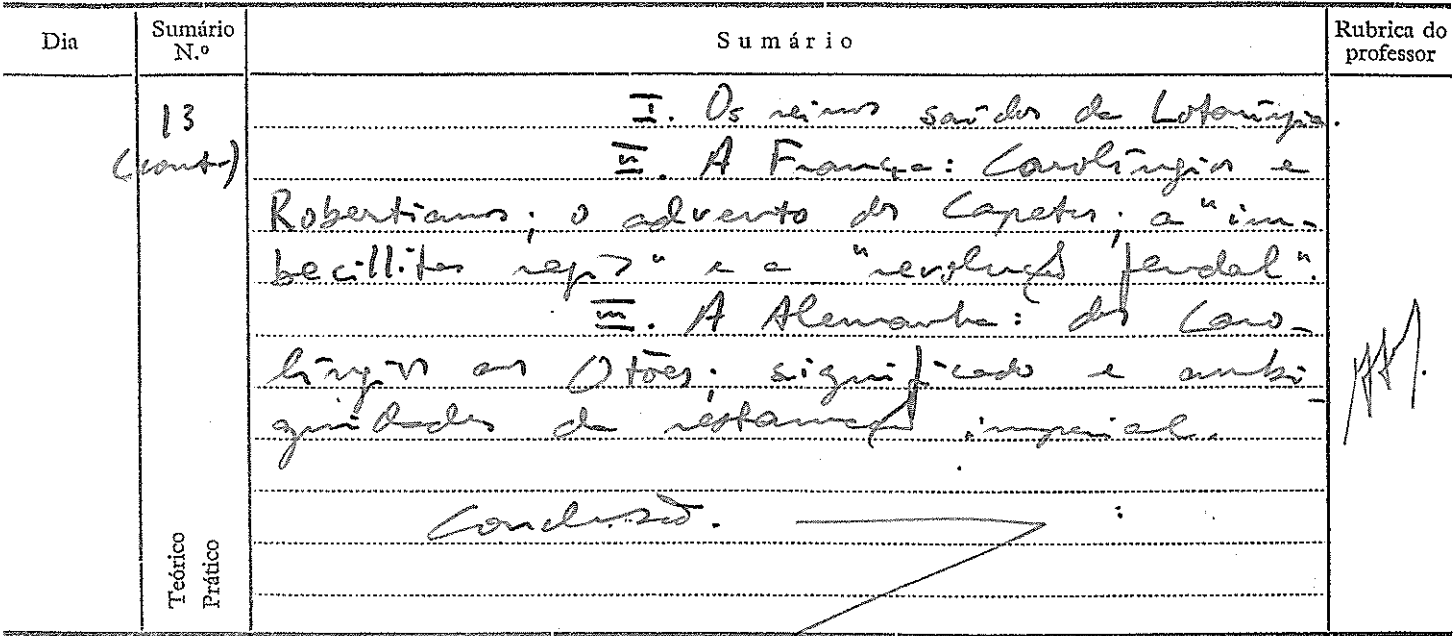 Dia
Sumário N.º
Sumário
Rubrica do professor
13 (cont.)
I. Os reinos saídos da Lotaríngia.
II. A França: Carolíngios e
Robertianos; o advento dos Capetos; a "im-
becillitas regis" e a "revolução feudal".
III. A Alemanha: dos Caro-
língios aos Otões; significado e ambi-
guidades da restauração imperial.
Conclusão.
Teórico
Prático